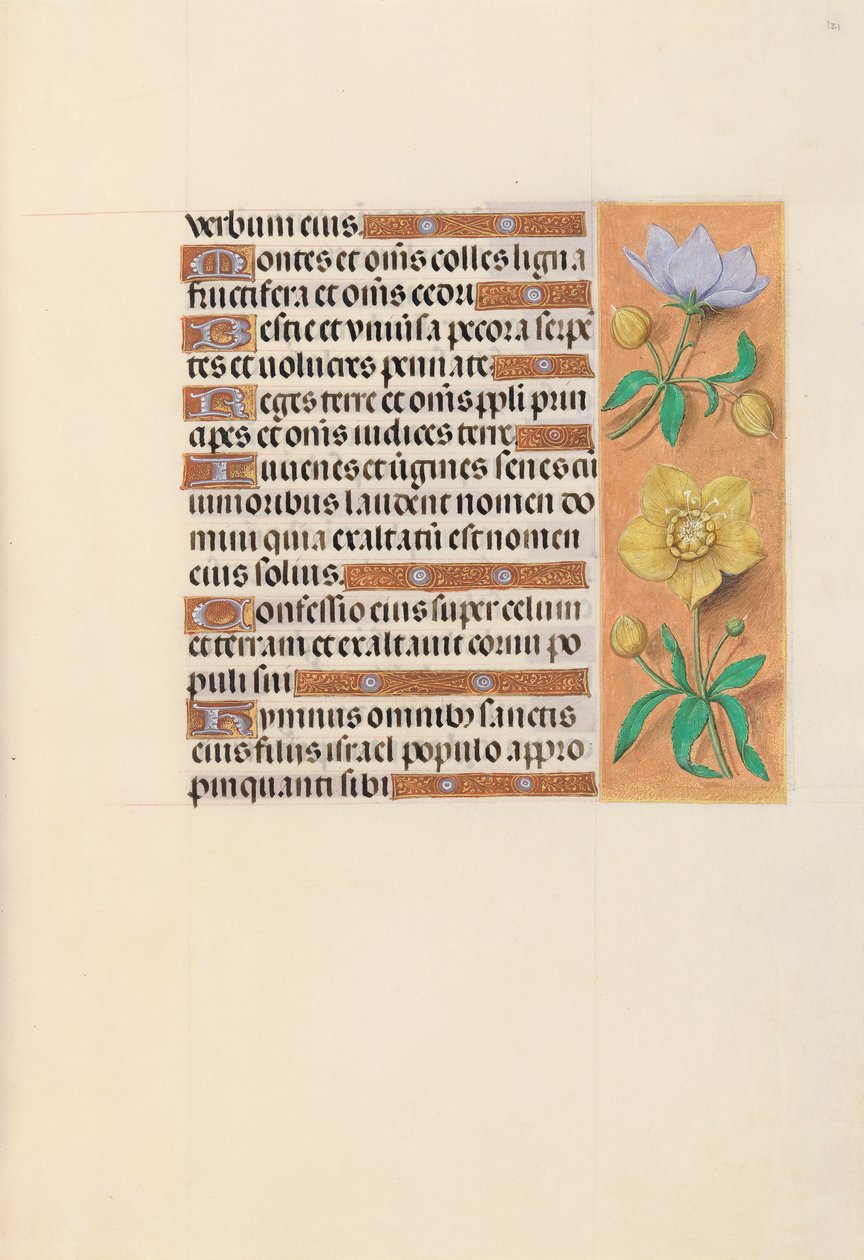 121
verbum eius.
Montes et om̄s colles ligna
fructifera et om̄s cedri
Bestie et vniūsa pecora serpē
tes et uolucres pennate
Reges terre et om̄s ppli prin
cipes et om̄s iudices terre
Iuuenes et ūgines senes cū
iunioribus laudent nomen do
mini quia exaltatū est nomen
eius solius.
Confessio eius super celum
et terram et exaltauit cornu po
puli sui
Hymnus omnibꝫ sanctis
eius filiis israel populo appro
pinquanti sibi